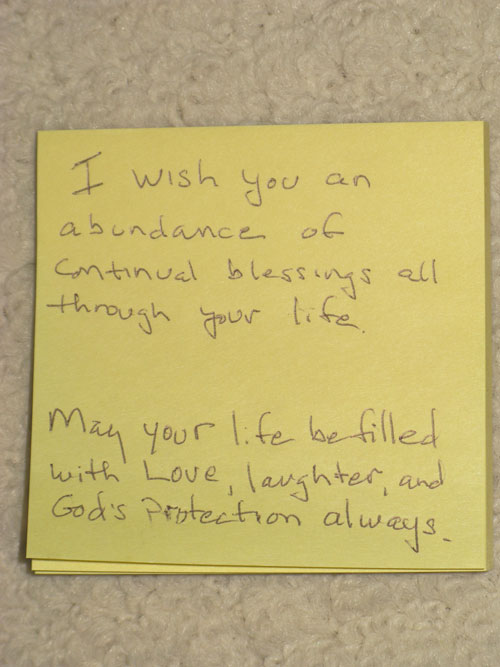 I wish you an
abundance of
continual blessings all
through your life.
May your life be filled
with Love, laughter, and
God's Protection always.